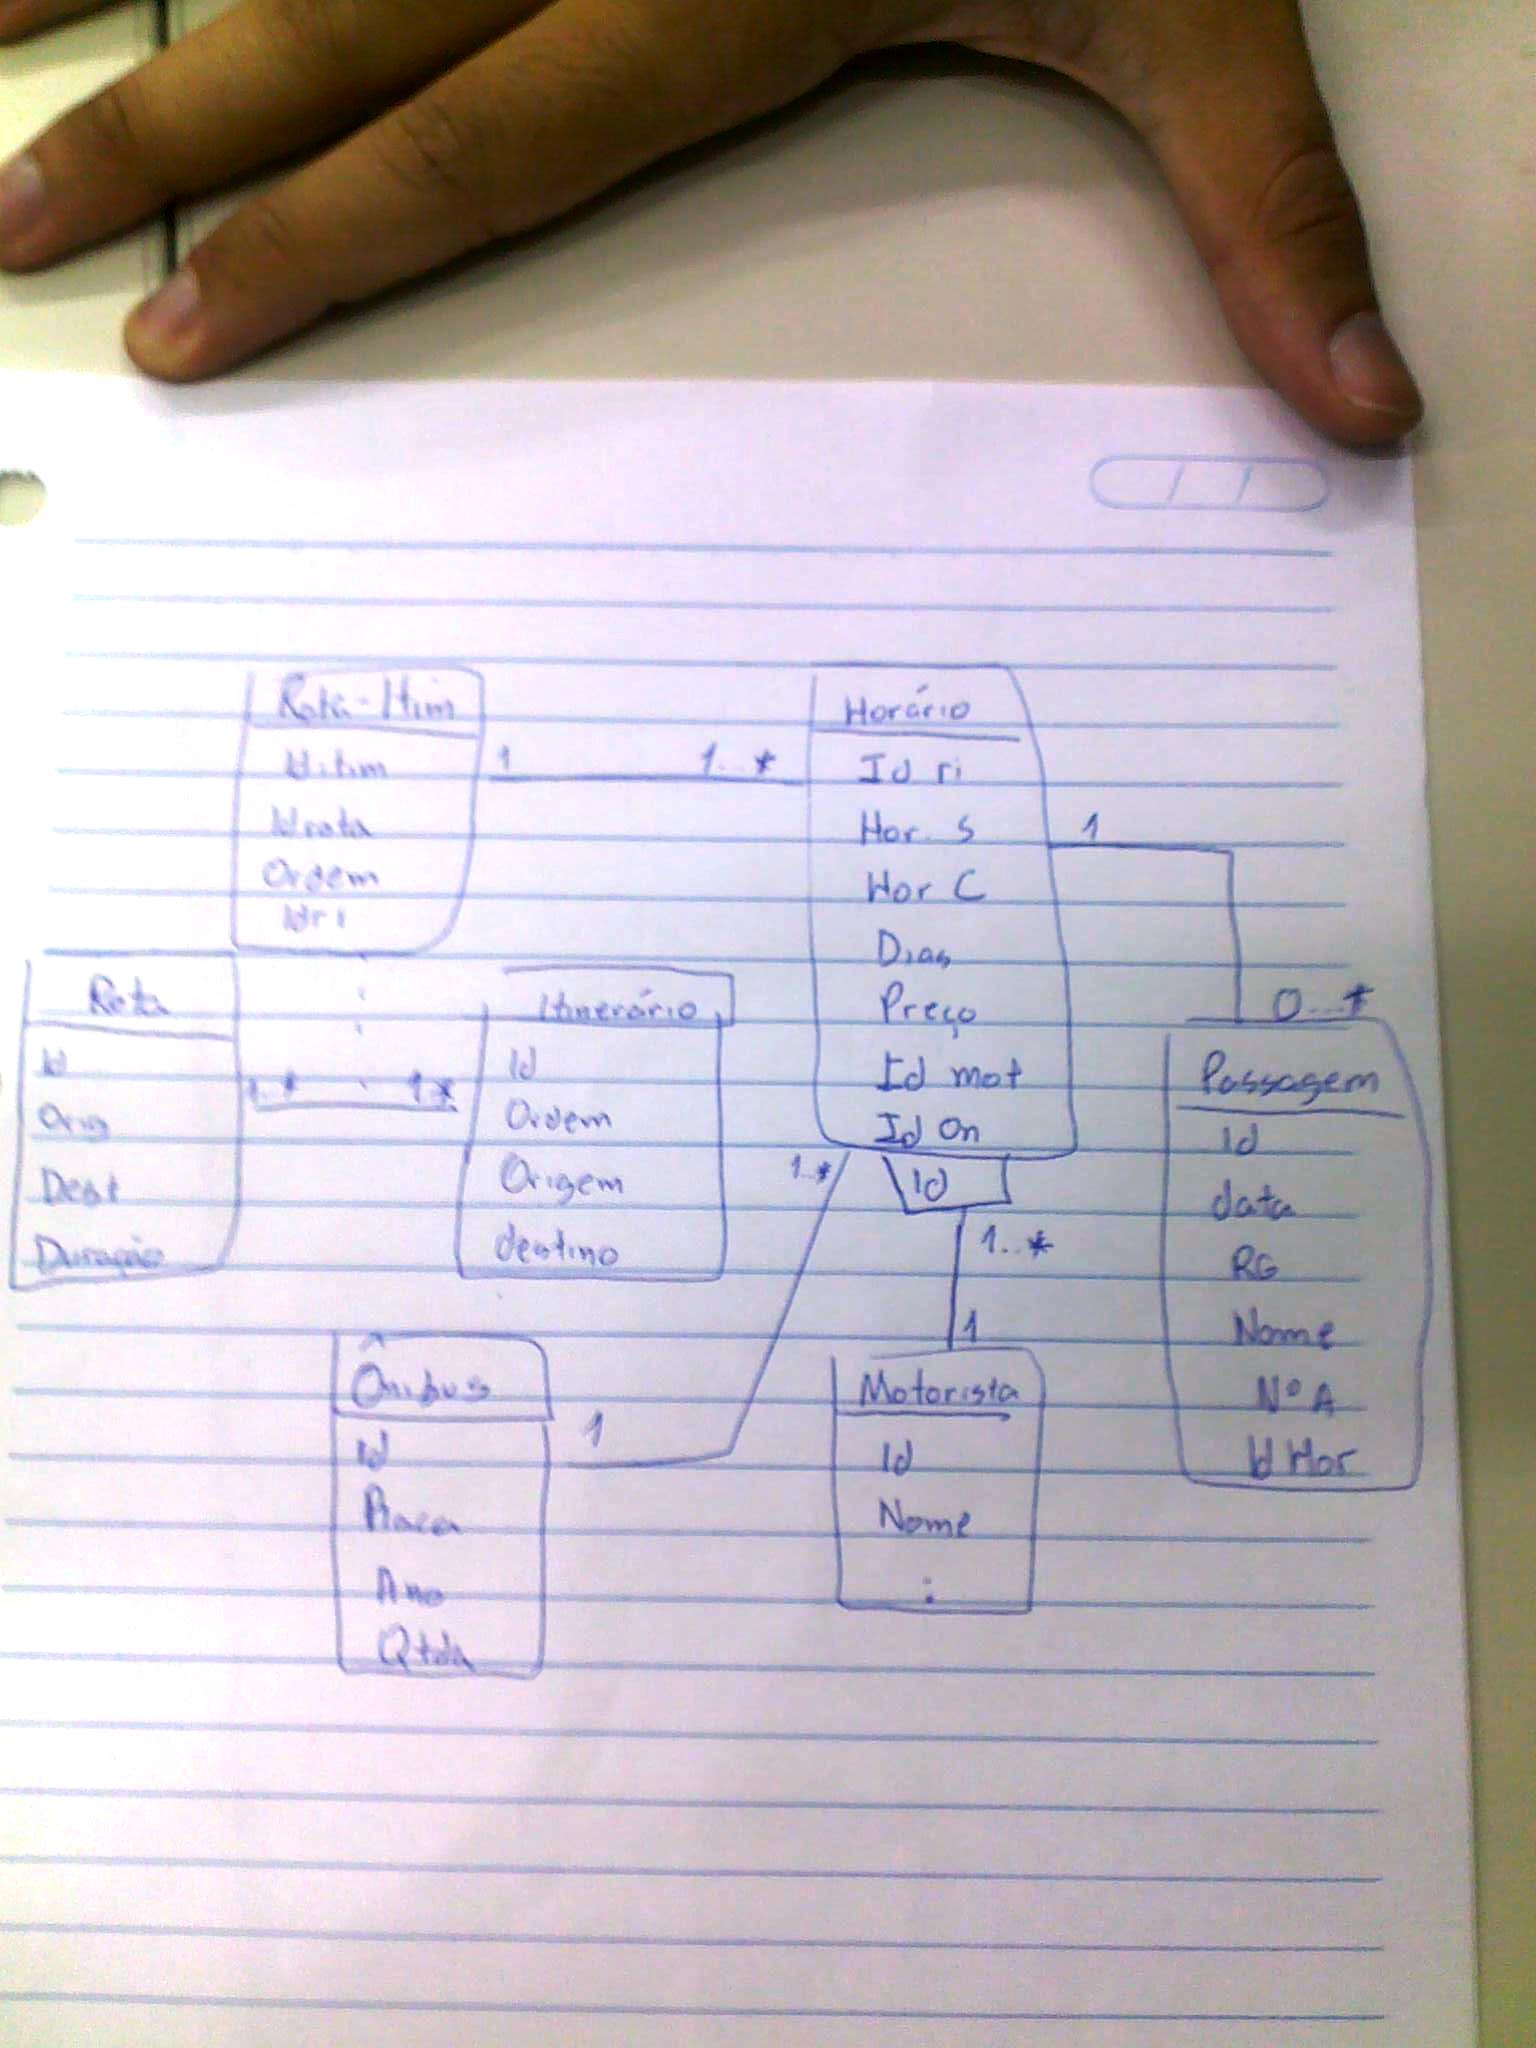 Rota-Itin
Iditin
Idrota
Ordem
Idri
1
1..*
Horário
Id ri
Hor. S
Hor C
Dias
Preço
Id mot
Id On
Id
1
0...*
Rota
Id
Orig
Dest
Duração
1..*
1..*
Itinerário
Id
Ordem
Origem
destino
Passagem
Id
data
RG
Nome
Nº A
Id Hor
1..*
1..*
1
1
Ônibus
Id
Placa
Ano
Qtda
Motorista
Id
Nome
: